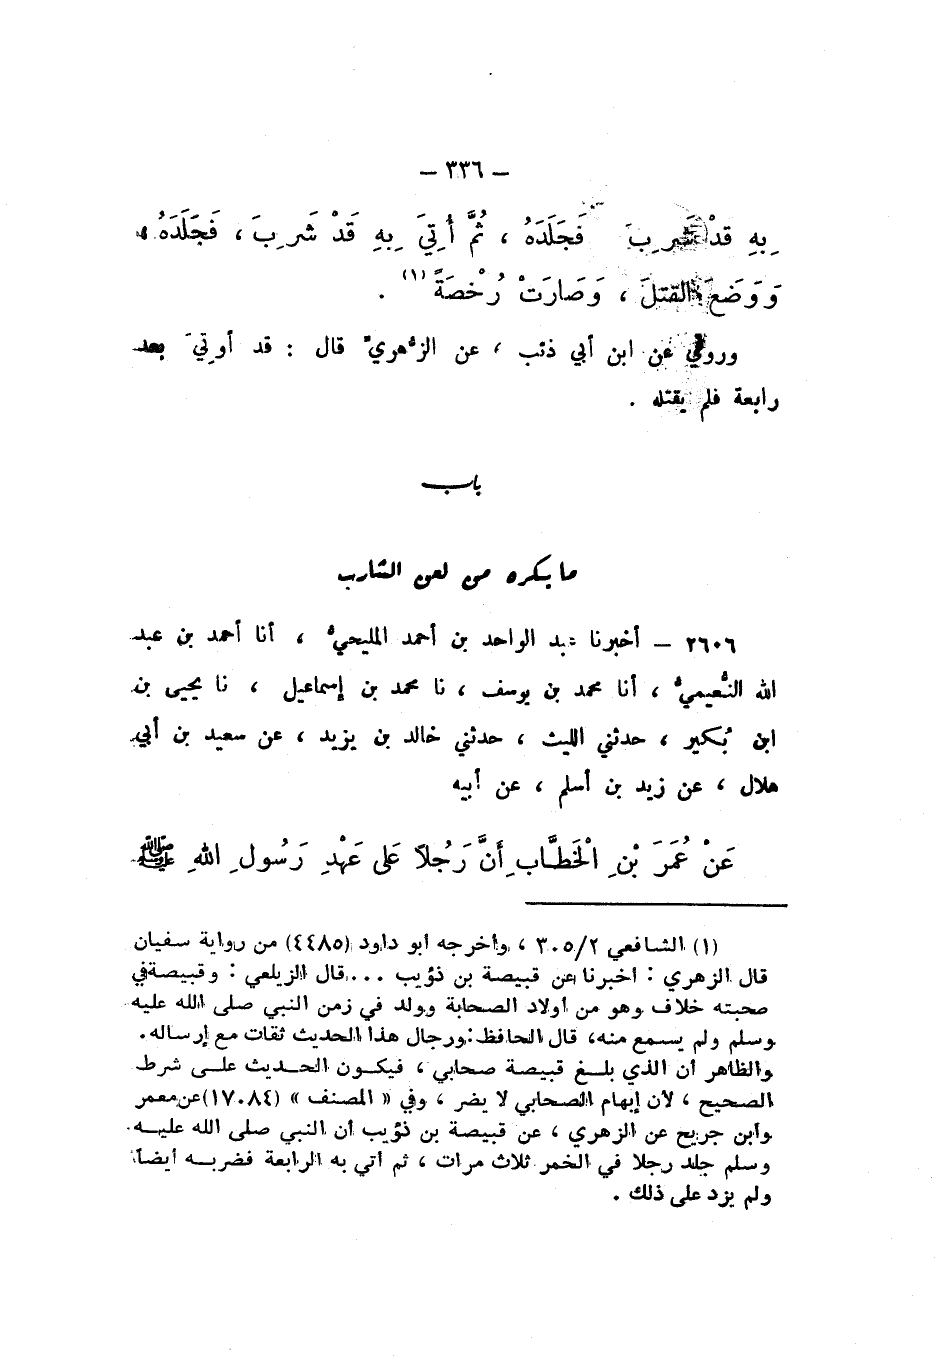 – ٣٣٦ –
بِهِ قَدْ شَرِبَ فَجَلَدَهُ ، ثُمَّ أُتِيَ بِهِ قَدْ شَرِبَ ، فَجَلَدَهُ ،
وَوَضَعَ القَتْلَ ، وَصَارَتْ رُخْصَةً (١) .
وروي عن ابن أبي ذئب ، عن الزهري قال : قد أوتيَ بعد
رابعة فلم يقتله .
باب
ما يكره من لعن الشارب
٢٦٠٦ – أخبرنا عبد الواحد بن أحمد المليحيُّ ، أنا أحمد بن عبد
الله النُّعيميُّ ، أنا محمد بن يوسف ، نا محمد بن إسماعيل ، نا يحيى بن
ابن بُكير ، حدثني الليث ، حدثني خالد بن يزيد ، عن سعيد بن أبي
هلال ، عن زيد بن أسلم ، عن أبيه
عَنْ عُمَرَ بْنِ الْخَطَّابِ أَنَّ رَجُلاً عَلَى عَهْدِ رَسُولِ اللهِ ﷺ
(١) الشافعي ٣٠٥/٢ ، وأخرجه أبو داود (٤٤٨٥) من رواية سفيان
قال الزهري : أخبرنا عن قبيصة بن ذؤيب ... قال الزيلعي : وقبيصة في
صحبته خلاف وهو من أولاد الصحابة وولد في زمن النبي صلى الله عليه
وسلم ولم يسمع منه، قال الحافظ: ورجال هذا الحديث ثقات مع إرساله .
والظاهر أن الذي بلغ قبيصة صحابي ، فيكون الحديث على شرط
الصحيح ، لأن إبهام الصحابي لا يضر ، وفي « المصنف » (١٧٠٨٤) عن معمر
وابن جريج عن الزهري ، عن قبيصة بن ذؤيب أن النبي صلى الله عليه
وسلم جلد رجلا في الخمر ثلاث مرات ، ثم أتي به الرابعة فضربه أيضاً
ولم يزد على ذلك .